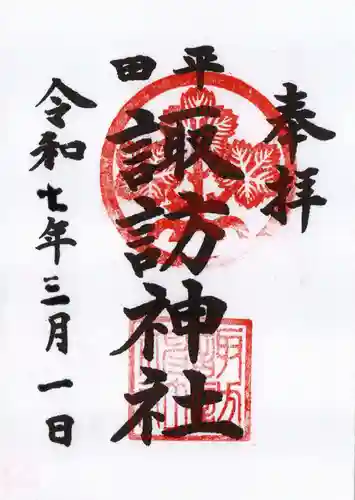 奉拝
平田
諏訪神社
令和七年三月一日